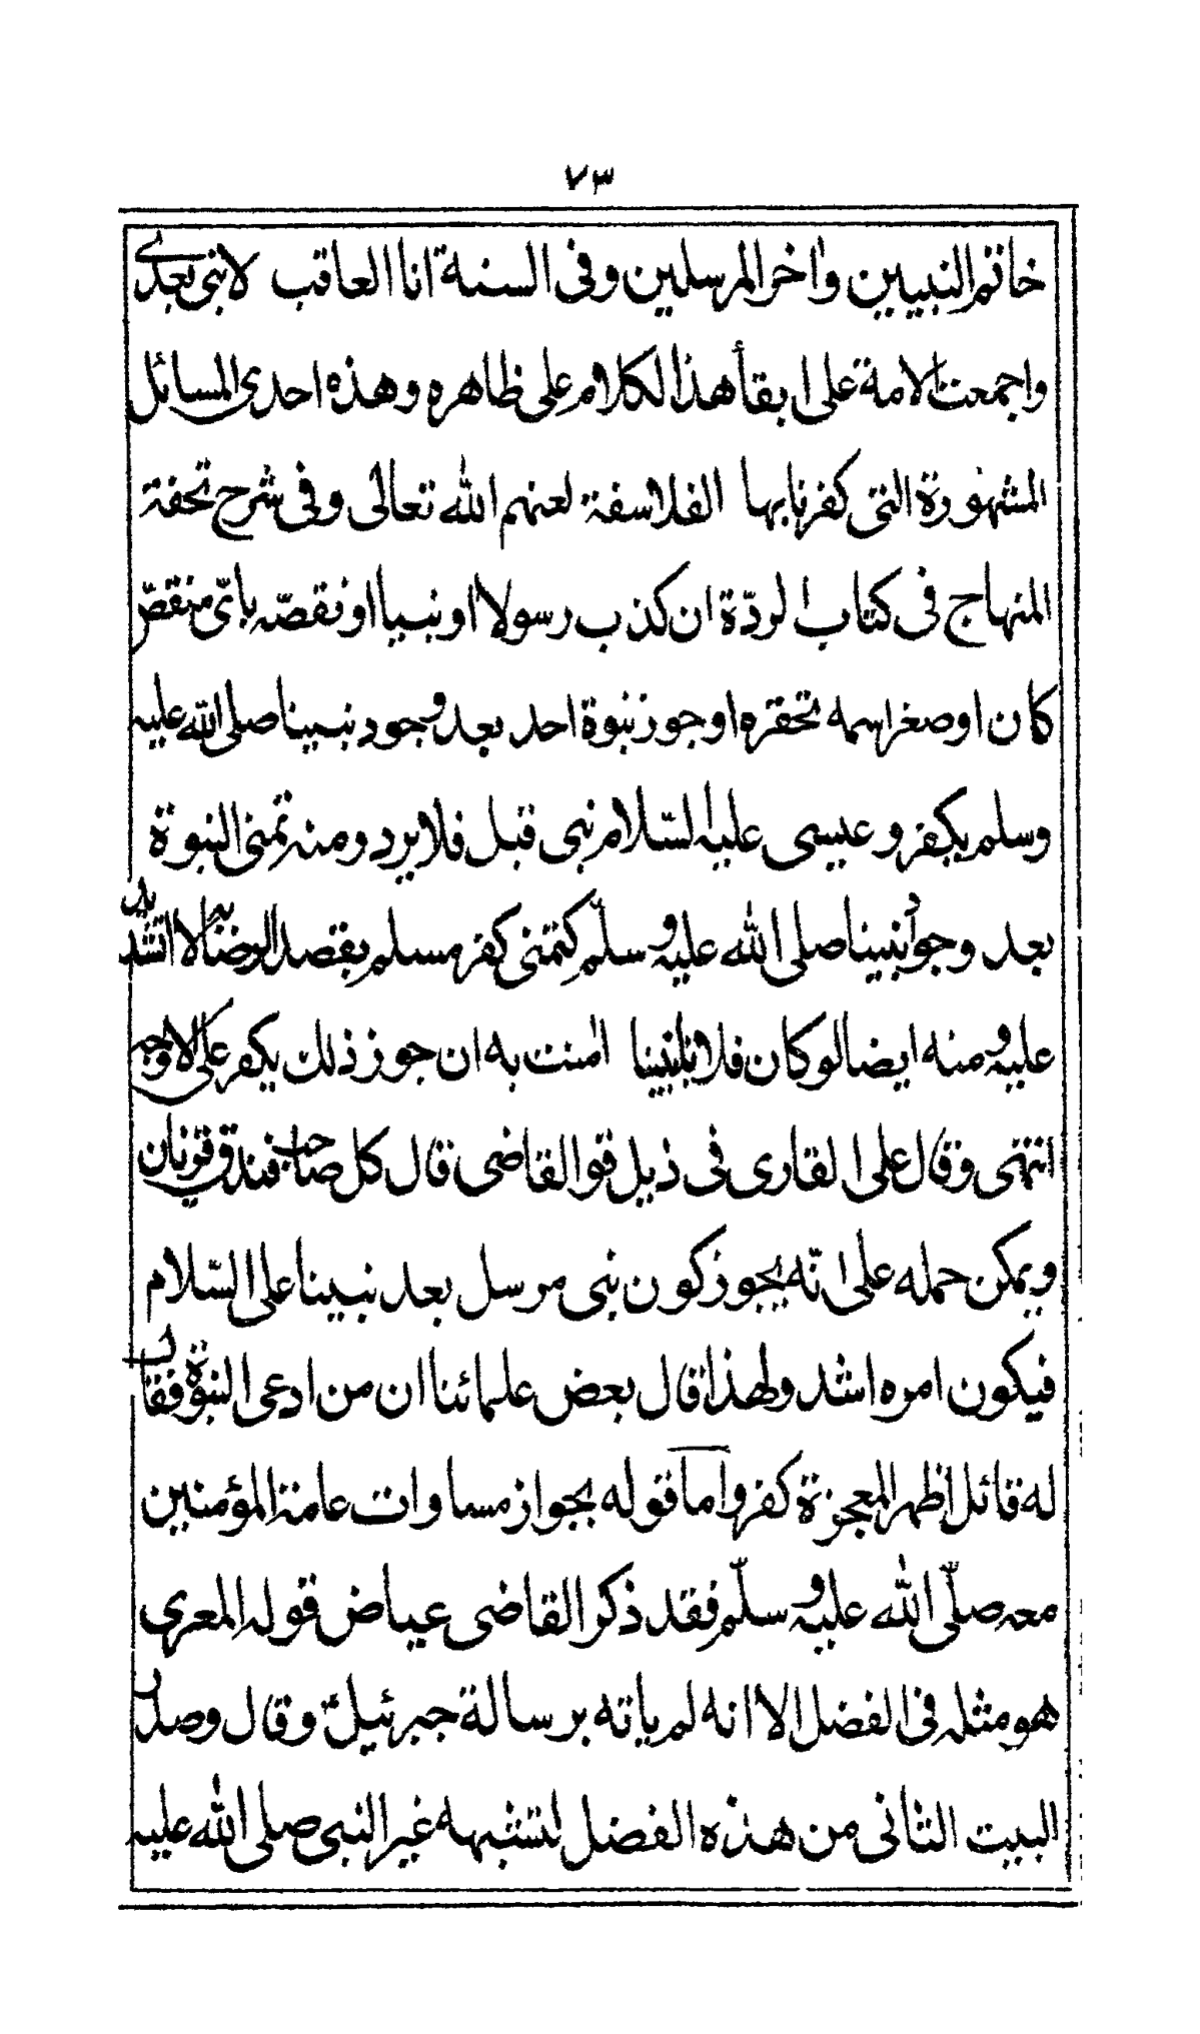 ٧٣
خاتم النبيين واخر المرسلين وفى السنة انا العاقب لانبى بعدى
واجمعت الامة على ابقأ هذا الكلام على ظاهره وهذه احدى المسائل
المشهورة التى كفرنا بها الفلاسفة لعنهم الله تعالى وفى شرح تحفة
المنهاج فى كتاب الردّة ان كذب رسولا او نبيا او نقصّه باىّ منقصّ
كان او صغر اسمه تحقره او جوز نبوة احد بعد وجود نبينا صلى الله عليه
وسلم يكفر وعيسى عليه السّلام نبى قبل فلا يرد ومنه تمنى النبوة
بعد وجود نبينا صلى الله عليه وسلّم كتمنى كفر مسلم بقصد الرضا به لا التشديد
عليه ومنه ايضا لو كان فلان نبينا امنت به ان جوز ذلك يكفر على الاوجه
انتهى وقال على القارى فى ذيل قو القاضى قال كل صاحب فندق قرنان
ويمكن حمله على انّه يجوز كون نبى مرسل بعد نبينا على السّلام
فيكون امره اشد ولهذا قال بعض علمائنا ان من ادعى النبوة فقال
له قائل اظهر المعجزة كفر واما قوله بجواز مساوات عامة المؤمنين
معه صلّى الله عليه وسلّم فقد ذكر القاضى عياض قوله المعرى
هو مثله فى الفضل الا انه لم ياته برسالة جبرئيل وقال وصدر
البيت الثانى من هذه الفضل لتشبهه غير النبى صلى الله عليه